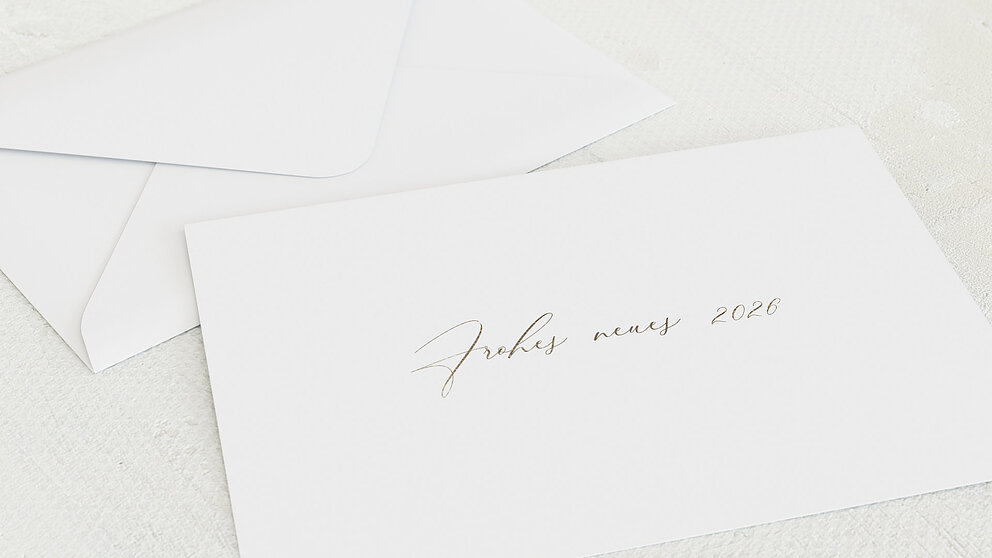 Frohes neues 2026